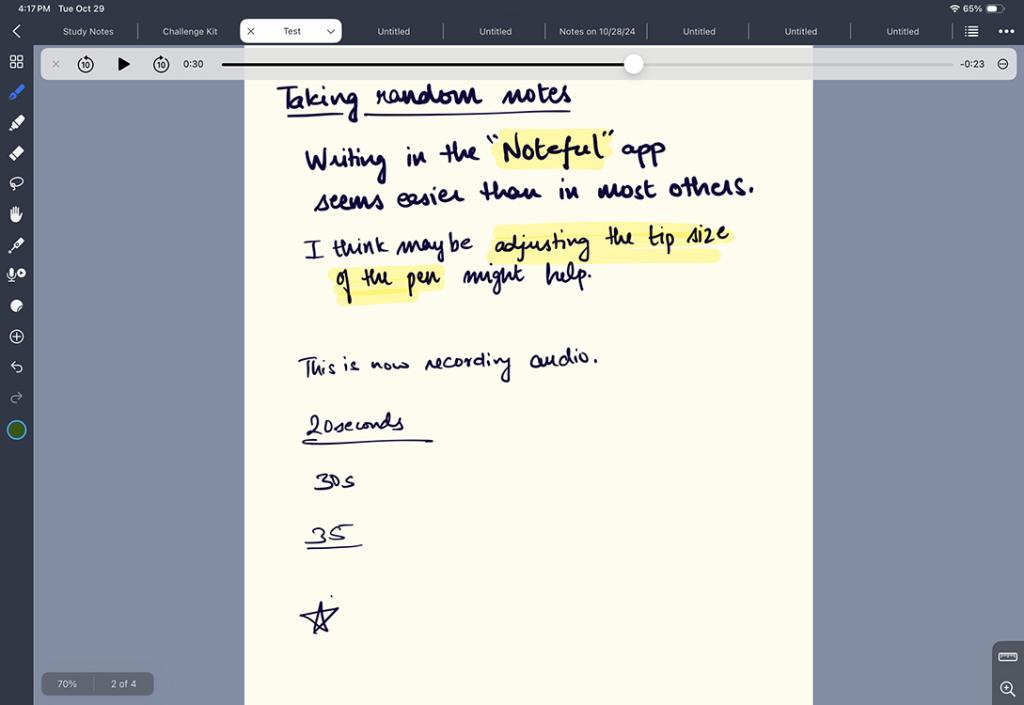 4:17 PM Tue Oct 29 65%
Study Notes Challenge Kit Test Untitled Untitled Notes on 10/28/24 Untitled Untitled Untitled
10 10 0:30 -0:23
Taking random notes
Writing in the "Noteful" app
seems easier than in most others.
I think maybe adjusting the tip size
of the pen might help.
This is now recording audio.
20seconds
30s
35
70% 2 of 4